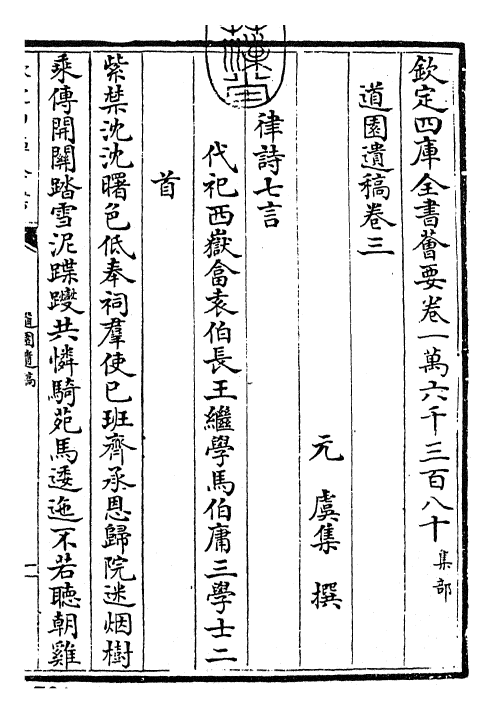 欽定四庫全書薈要卷一萬六千三百八十集部
道園遺稿卷三
元虞集撰
律詩七言
代祀西嶽畣袁伯長王繼學馬伯庸三學士二
首
紫禁沈沈曙色低奉祠羣使已班齊承恩歸院迷烟樹
乘傳開闗踏雪泥蹀躞共憐騎苑馬逶迤不若聴朝雞
道園遺稿